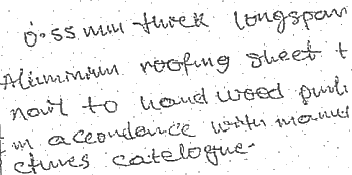 0.55 mm thick longspan
Aluminium roofing sheet t
nail to hand wood purli
in accondance with manu
ctures catelogue.